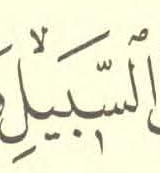 ٱلسَّبِيلِۙ